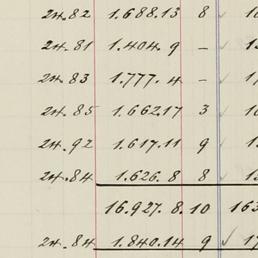 24.82 1.688.13 8 ✓ 1
24.81 1.404.9 – 1
24.83 1.777.4 – 1
24.85 1.662.17 3 1
24.92 1.617.11 9 1
24.84 1.626.8 8 1
16.927.8.10 163
24.84 1.840.14 9 ✓ 17